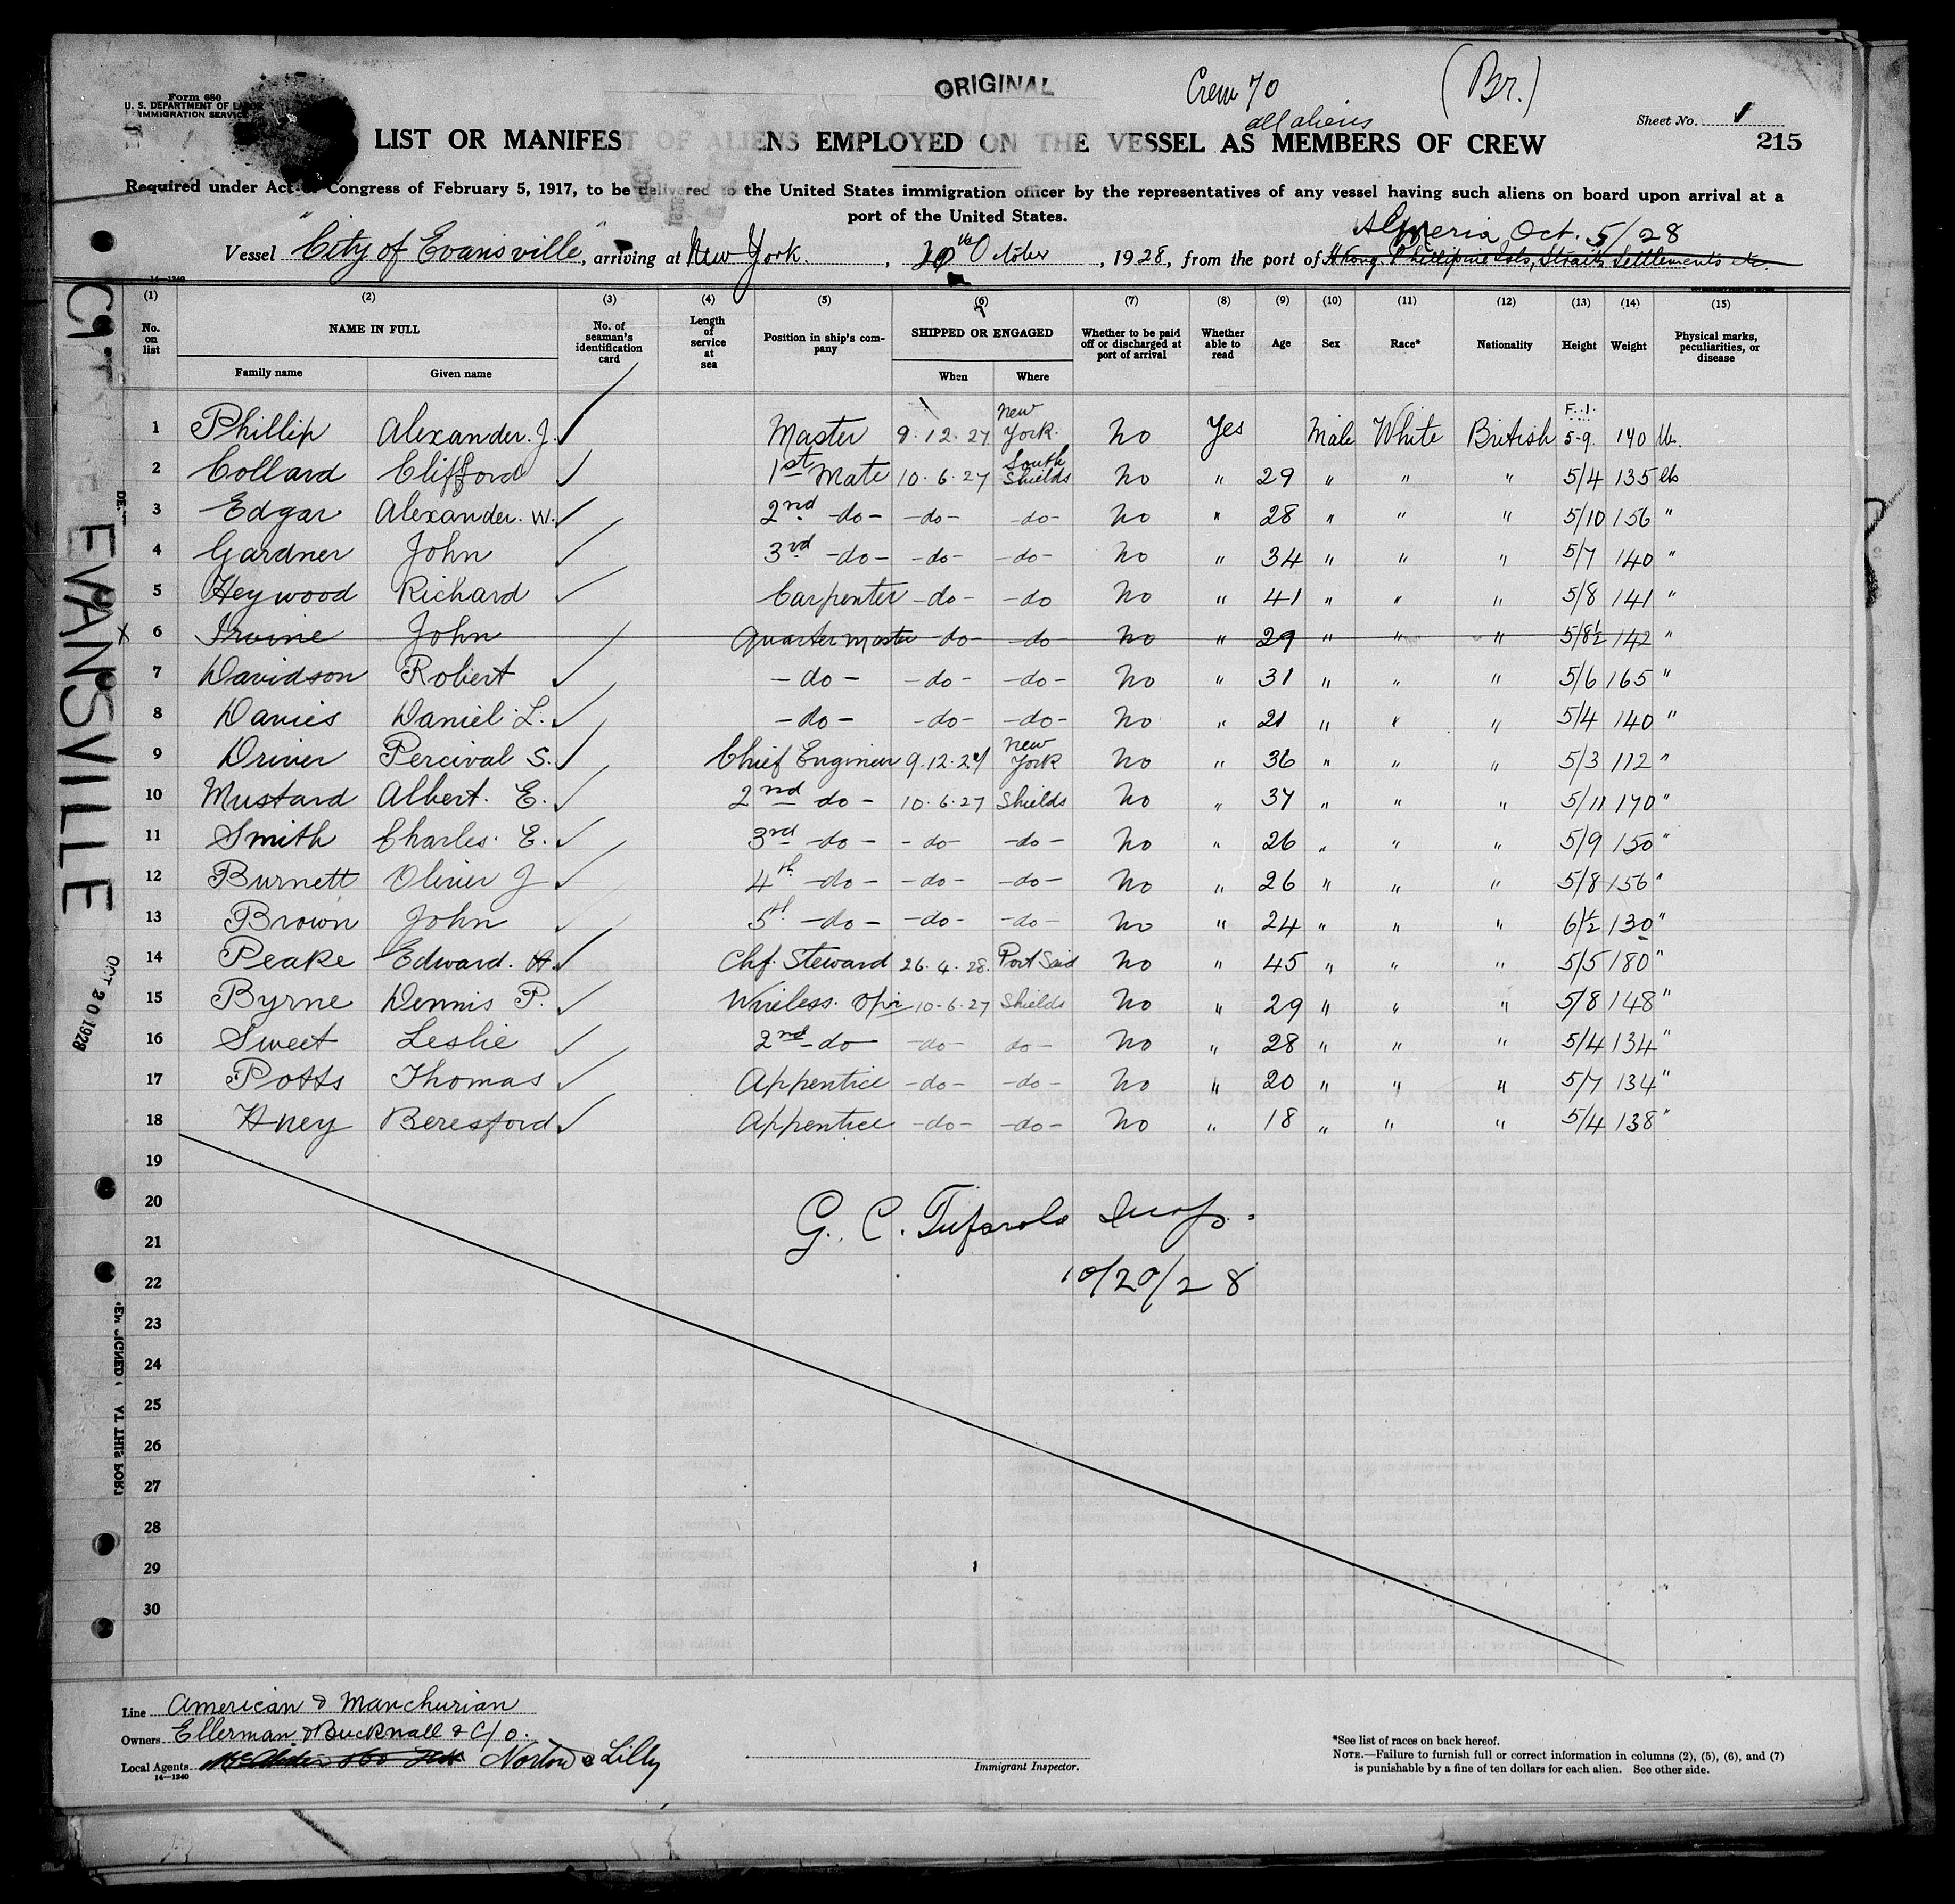 Form 680
U. S. DEPARTMENT OF LABOR
IMMIGRATION SERVICE
ORIGINAL
Crew 70
all aliens
(Br.)
Sheet No. 1
215
LIST OR MANIFEST OF ALIENS EMPLOYED ON THE VESSEL AS MEMBERS OF CREW
Required under Act of Congress of February 5, 1917, to be delivered to the United States immigration officer by the representatives of any vessel having such aliens on board upon arrival at a
port of the United States.
Almeria Oct. 5/28
Vessel "City of Evansville", arriving at New York., 20th October, 1928, from the port of HKong Phillipine Isls, Straits Settlements etc.
14—1240
(1) (2) (3) (4) (5) (6) (7) (8) (9) (10) (11) (12) (13) (14) (15)
No. on list NAME IN FULL No. of seaman's identification card Length of service at sea Position in ship's company SHIPPED OR ENGAGED Whether to be paid off or discharged at port of arrival Whether able to read Age Sex Race* Nationality Height Weight Physical marks, peculiarities, or disease
Family name Given name When Where
1 Phillip Alexander. J. Master 9.12.27 New York. No Yes Male White British F. I. 5-9. 140 lb.
2 Collard Clifford 1st Mate 10.6.27 South Shields No " 29 " " " 5/4 135 lbs
3 Edgar Alexander. W. 2nd -do- -do- -do- No " 28 " " " 5/10 156 "
4 Gardner John 3rd -do- -do- -do- No " 34 " " " 5/7 140 "
5 Heywood Richard Carpenter -do- -do No " 41 " " " 5/8 141 "
x 6 Irvine John Quartermaster -do- -do- No " 29 " " " 5/8½ 142 "
7 Davidson Robert -do- -do- -do- No " 31 " " " 5/6 165 "
8 Davies Daniel L. -do- -do- -do- No " 21 " " " 5/4 140 "
9 Driver Percival S. Chief Engineer 9.12.27 New York No " 36 " " " 5/3 112 "
10 Mustard Albert. E. 2nd do - 10.6.27 Shields No " 37 " " " 5/11 170 "
11 Smith Charles. E. 3rd -do- -do- -do- No " 26 " " " 5/9 150 "
12 Burnett Oliver J 4th -do- -do- -do- No " 26 " " " 5/8 156 "
13 Brown John 5th -do- -do- -do- No " 24 " " " 6/½ 130 "
14 Peake Edward. H. Chf. Steward 26.4.28. Port Said No " 45 " " " 5/5 180 "
15 Byrne Dennis P. Wireless. Opr 10-6-27 Shields No " 29 " " " 5/8 148 "
16 Sweet Leslie 2nd -do -do- do- No " 28 " " " 5/4 134 "
17 Potts Thomas Apprentice -do- -do- No " 20 " " " 5/7 134 "
18 Beresford Apprentice -do- -do- No " 18 " " " 5/4 138 "
19
20
21
22
23
24
25
26
27
28
29
30
G. C. Insp.
10/20/28
CITY EVANSVILLE
OCT 20 1928
AT THIS PORT
Line American & Manchurian
Owners Ellerman & Bucknall & C/o.
Local Agents Norton & Lilly
14—1240
Immigrant Inspector.
*See list of races on back hereof.
NOTE.—Failure to furnish full or correct information in columns (2), (5), (6), and (7)
is punishable by a fine of ten dollars for each alien. See other side.